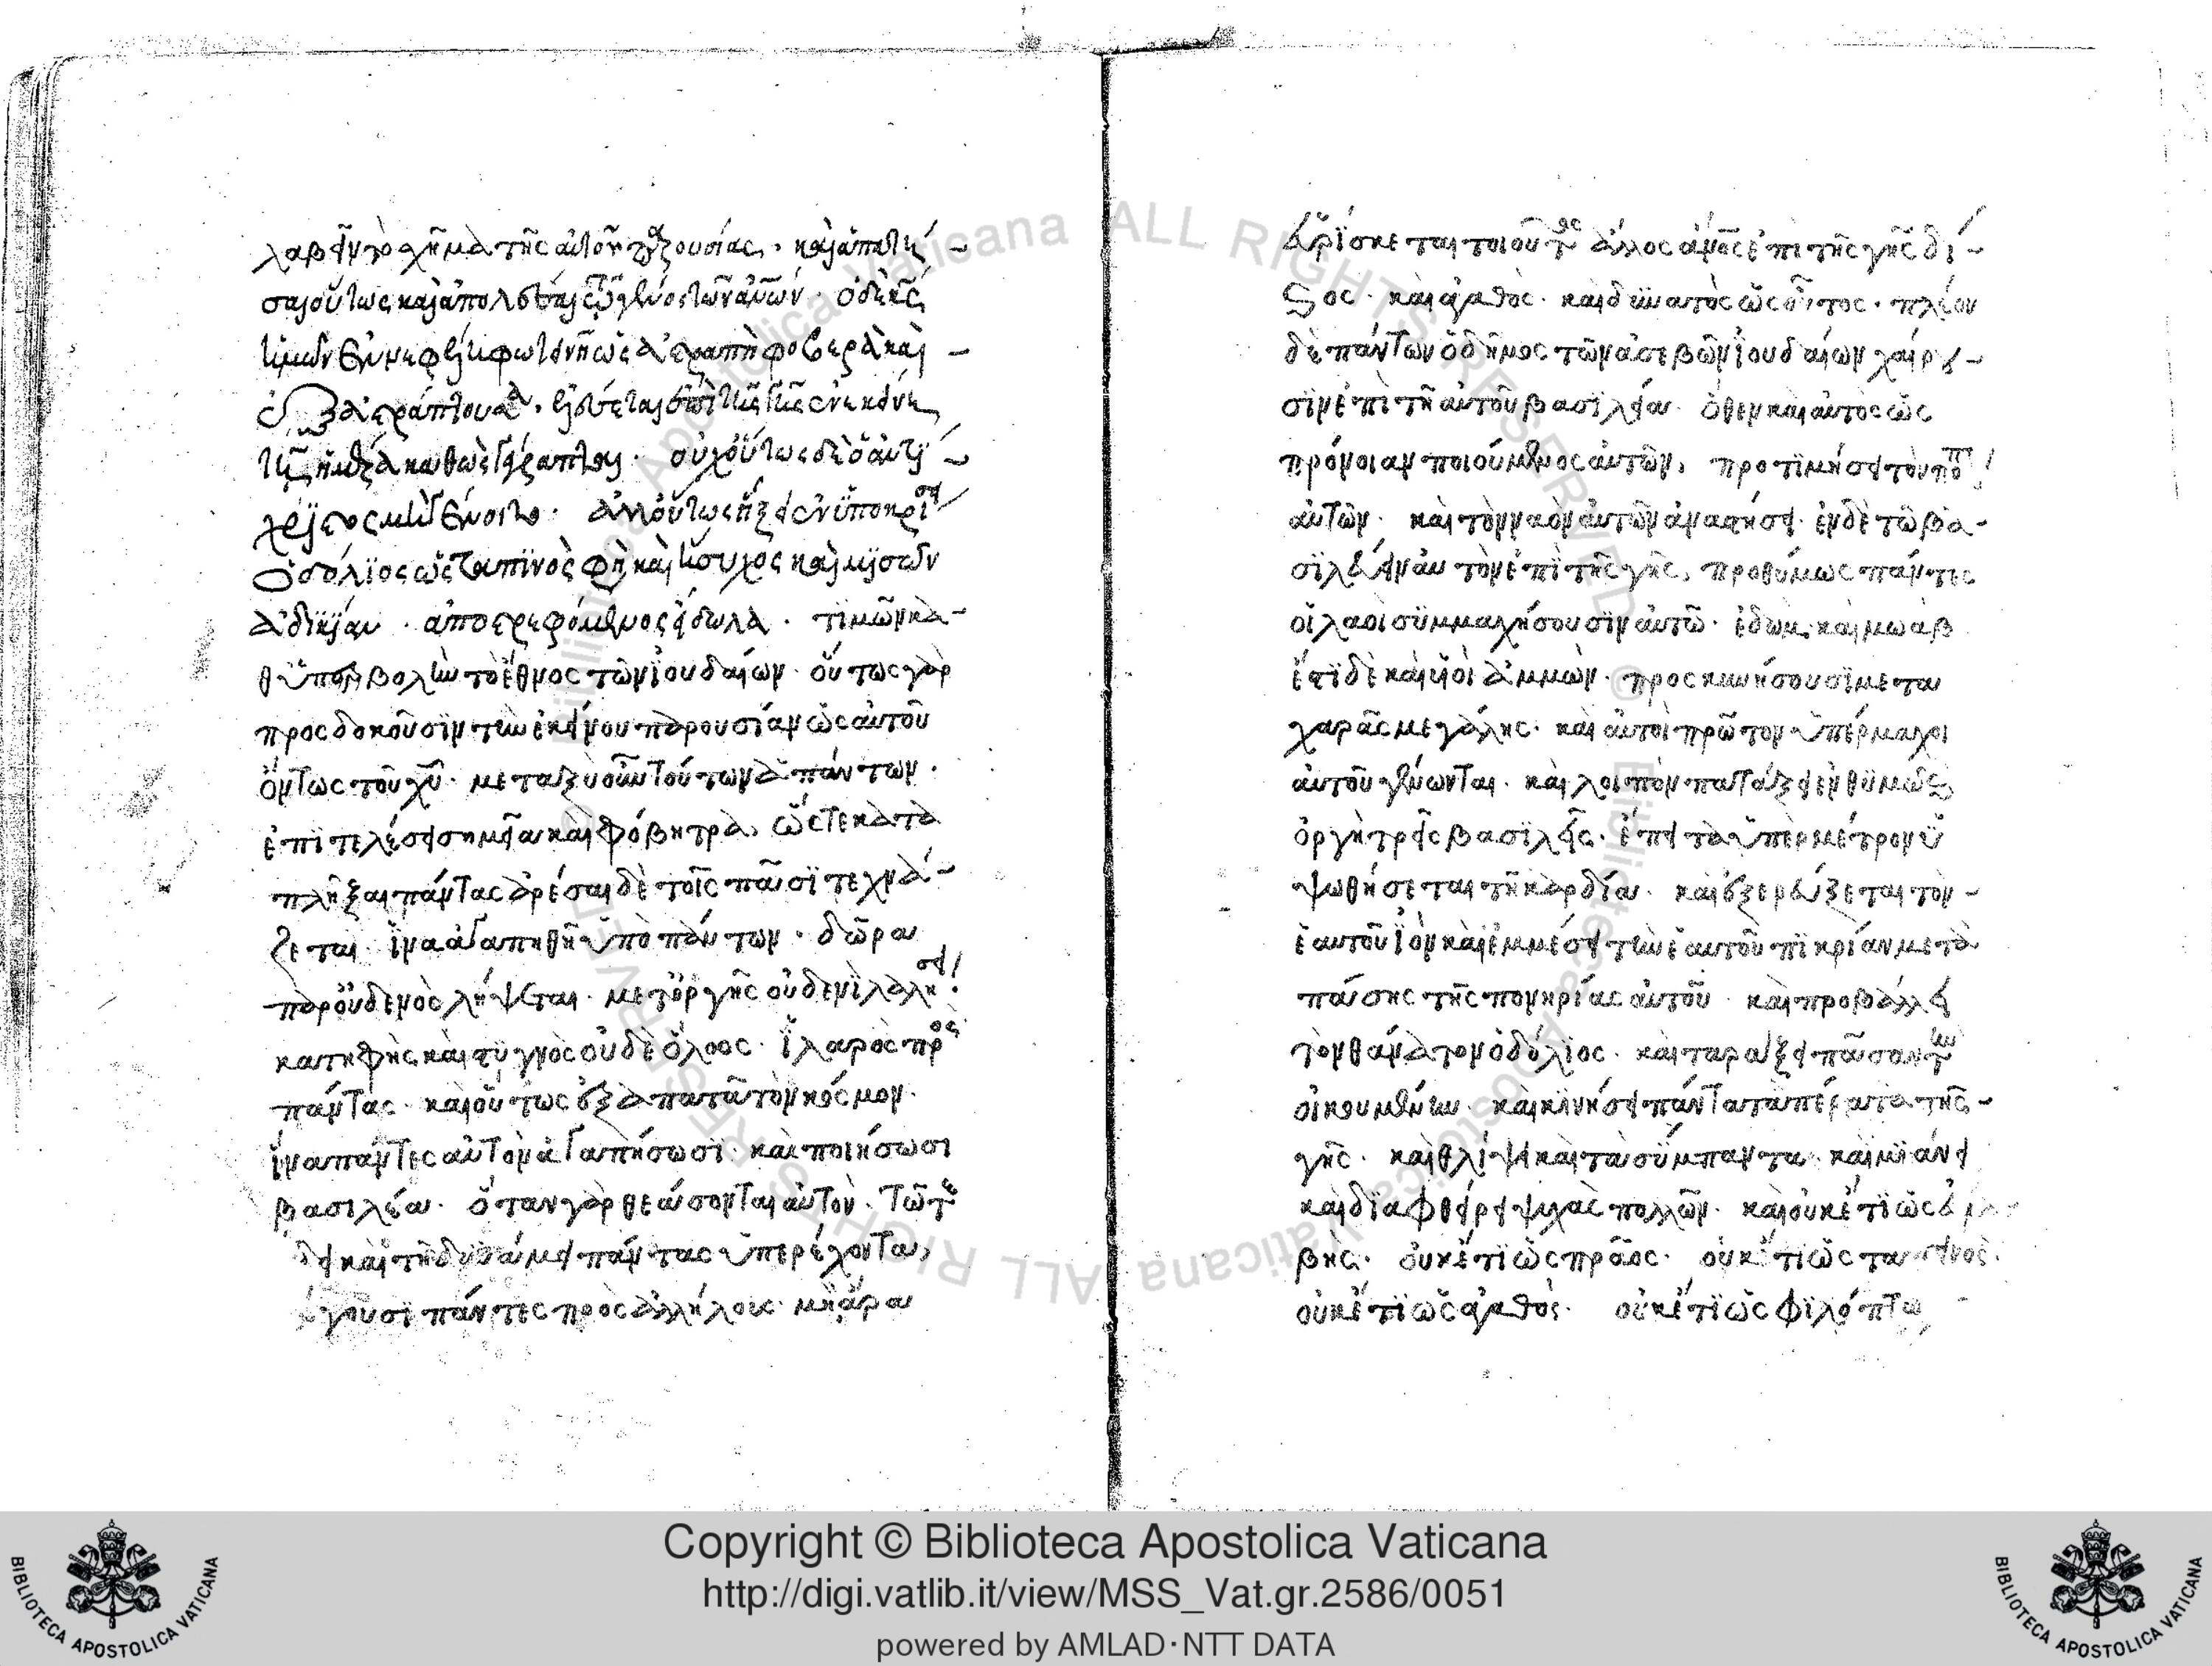 λαβεῖν τὸ χῆμα τῆς αὐτοῦ ἐξουσίας. καὶ ἀπατῆ-
σαι οὕτως καὶ ἀπολέσαι τὸ γένος τῶν ἀνων.
ὡς ἀστραπὴ φοβερὰ καὶ
ἀστράπτουσα.
καθὼς γέγραπται. οὐχ οὕτως δὲ ὁ ἀντί-
χριστος. ἀλλ' οὕτως ἥξει ἐν ὑποκρίσει
ὁ δόλϊος ὡς ταπϊνὸς φη καὶ ἥσυχος καὶ μϊσῶν
ἀδϊκΐαν. ἀποστρεφόμενος εἴδωλα. τιμῶν κα-
θ' ὑπερβολὴν τὸ ἔθνος τῶν ἰουδαίων. οὕτως γὰρ
προσδοκοῦσϊν τὴν ἐκείνου παρουσίαν ὡς αὐτοῦ
ὄντως τοῦ χυ. μεταξὺ οὖν τούτων ἁπάντων.
ἐπιτελέσει σημεῖα καὶ φόβητρα, ὥστε κατα
πλῆξαι πάντας ἀρέσαι δὲ τοῖς πᾶσϊ τεχνά-
ζεται. ἵνα ἀγαπηθῆ ὑπὸ πάντων. δῶρα
παρ' οὐδενὸς λήψεται. μετ' ὀργῆς οὐδενὶ λαλήσει.
κατηφὴς καὶ στυγνὸς οὐδὲ ὅλος. ἱλαρὸς πρὸς
πάντας. καὶ οὕτως ἐξαπατᾶ τὸν κόσμον.
ἵνα πάντες αὐτὸν ἀγαπήσωσϊ. καὶ ποιήσωσι
βασιλέα. ὅταν γὰρ θεάσονται αὐτὸν. τῶ τε
καὶ τῆ δυνάμει πάντας ὑπερέχοντα,
γουσϊ πάντες πρὸς ἀλλήλους. μὴ ἄρα
εὑρίσκεται τοιοῦτος ἄλλος ανος ἐπὶ τῆς γῆς δί-
καὶ ἀγαθὸς. καὶ δυνατὸς ὡς οὗτος. πλέον
δὲ πάντων ὁ δῆμος τῶν ἀσεβῶν ἰουδαίων χαίρου-
σϊν ἐπὶ τῆ αὐτοῦ βασϊλεία. ὅθεν καὶ αὐτὸς ὡς
πρόνοιαν ποιούμενος αὐτῶν, προτϊμήσει τὸν
αὐτῶν. καὶ τὸν ναὸν αὐτῶν ἀναστήσει. ἐν δὲ τῶ βα-
σϊλεύειν αὐτὸν ἐπὶ τῆς γῆς, προθύμως πάντες
οἱ λαοὶ συμμαχήσουσϊν αὐτῶ. ἐδὼμ, καὶ μωὰβ
ἔτϊ δὲ καὶ υἱοὶ ἀμμὼν. προσκυνήσουσϊ μετα
χαρᾶς μεγάλης. καὶ αὐτοὶ πρῶτον ὑπέρμαχοι
αὐτοῦ γένωνται. καὶ λοιπὸν πατάξει ἐν θυμῶ
ὀργὴ τρεῖς βασϊλεῖς. ἔπειτα ὑπὲρ μέτρον ὑ
ψωθήσεται τῆ καρδία. καὶ ἐξερεύξεται τὸν
ἑαυτοῦ ἰὸν καὶ ἐμμέσει τὴν ἑαυτοῦ πϊκρίαν μετὰ
πάσης τῆς πονηρίας αὐτοῦ. καὶ προβάλλει
τὸν θάνατον ὁ δόλϊος. καὶ ταράξει πᾶσαν τὴν
οἰκουμένην. καὶ κϊνήσει πάντα τὰ πέρατα τῆς
γῆς. καὶ θλίψει καὶ τὰ σύμπαντα. καὶ μϊάνει
καὶ δϊαφθείρει ψυχὰς πολλῶν. καὶ οὐκέτϊ ὡς
βὴς. οὐκέτϊ ὡς πρᾶος. οὐκέτι ὡς ταπεινὸς.
οὐκέτϊ ὡς ἀγαθὸς. οὐκέτϊ ὡς φϊλόπτω
Copyright © Biblioteca Apostolica Vaticana
http://digi.vatlib.it/view/MSS_Vat.gr.2586/0051
powered by AMLAD·NTT DATA
BIBLIOTECA APOSTOLICA VATICANA
BIBLIOTECA APOSTOLICA VATICANA